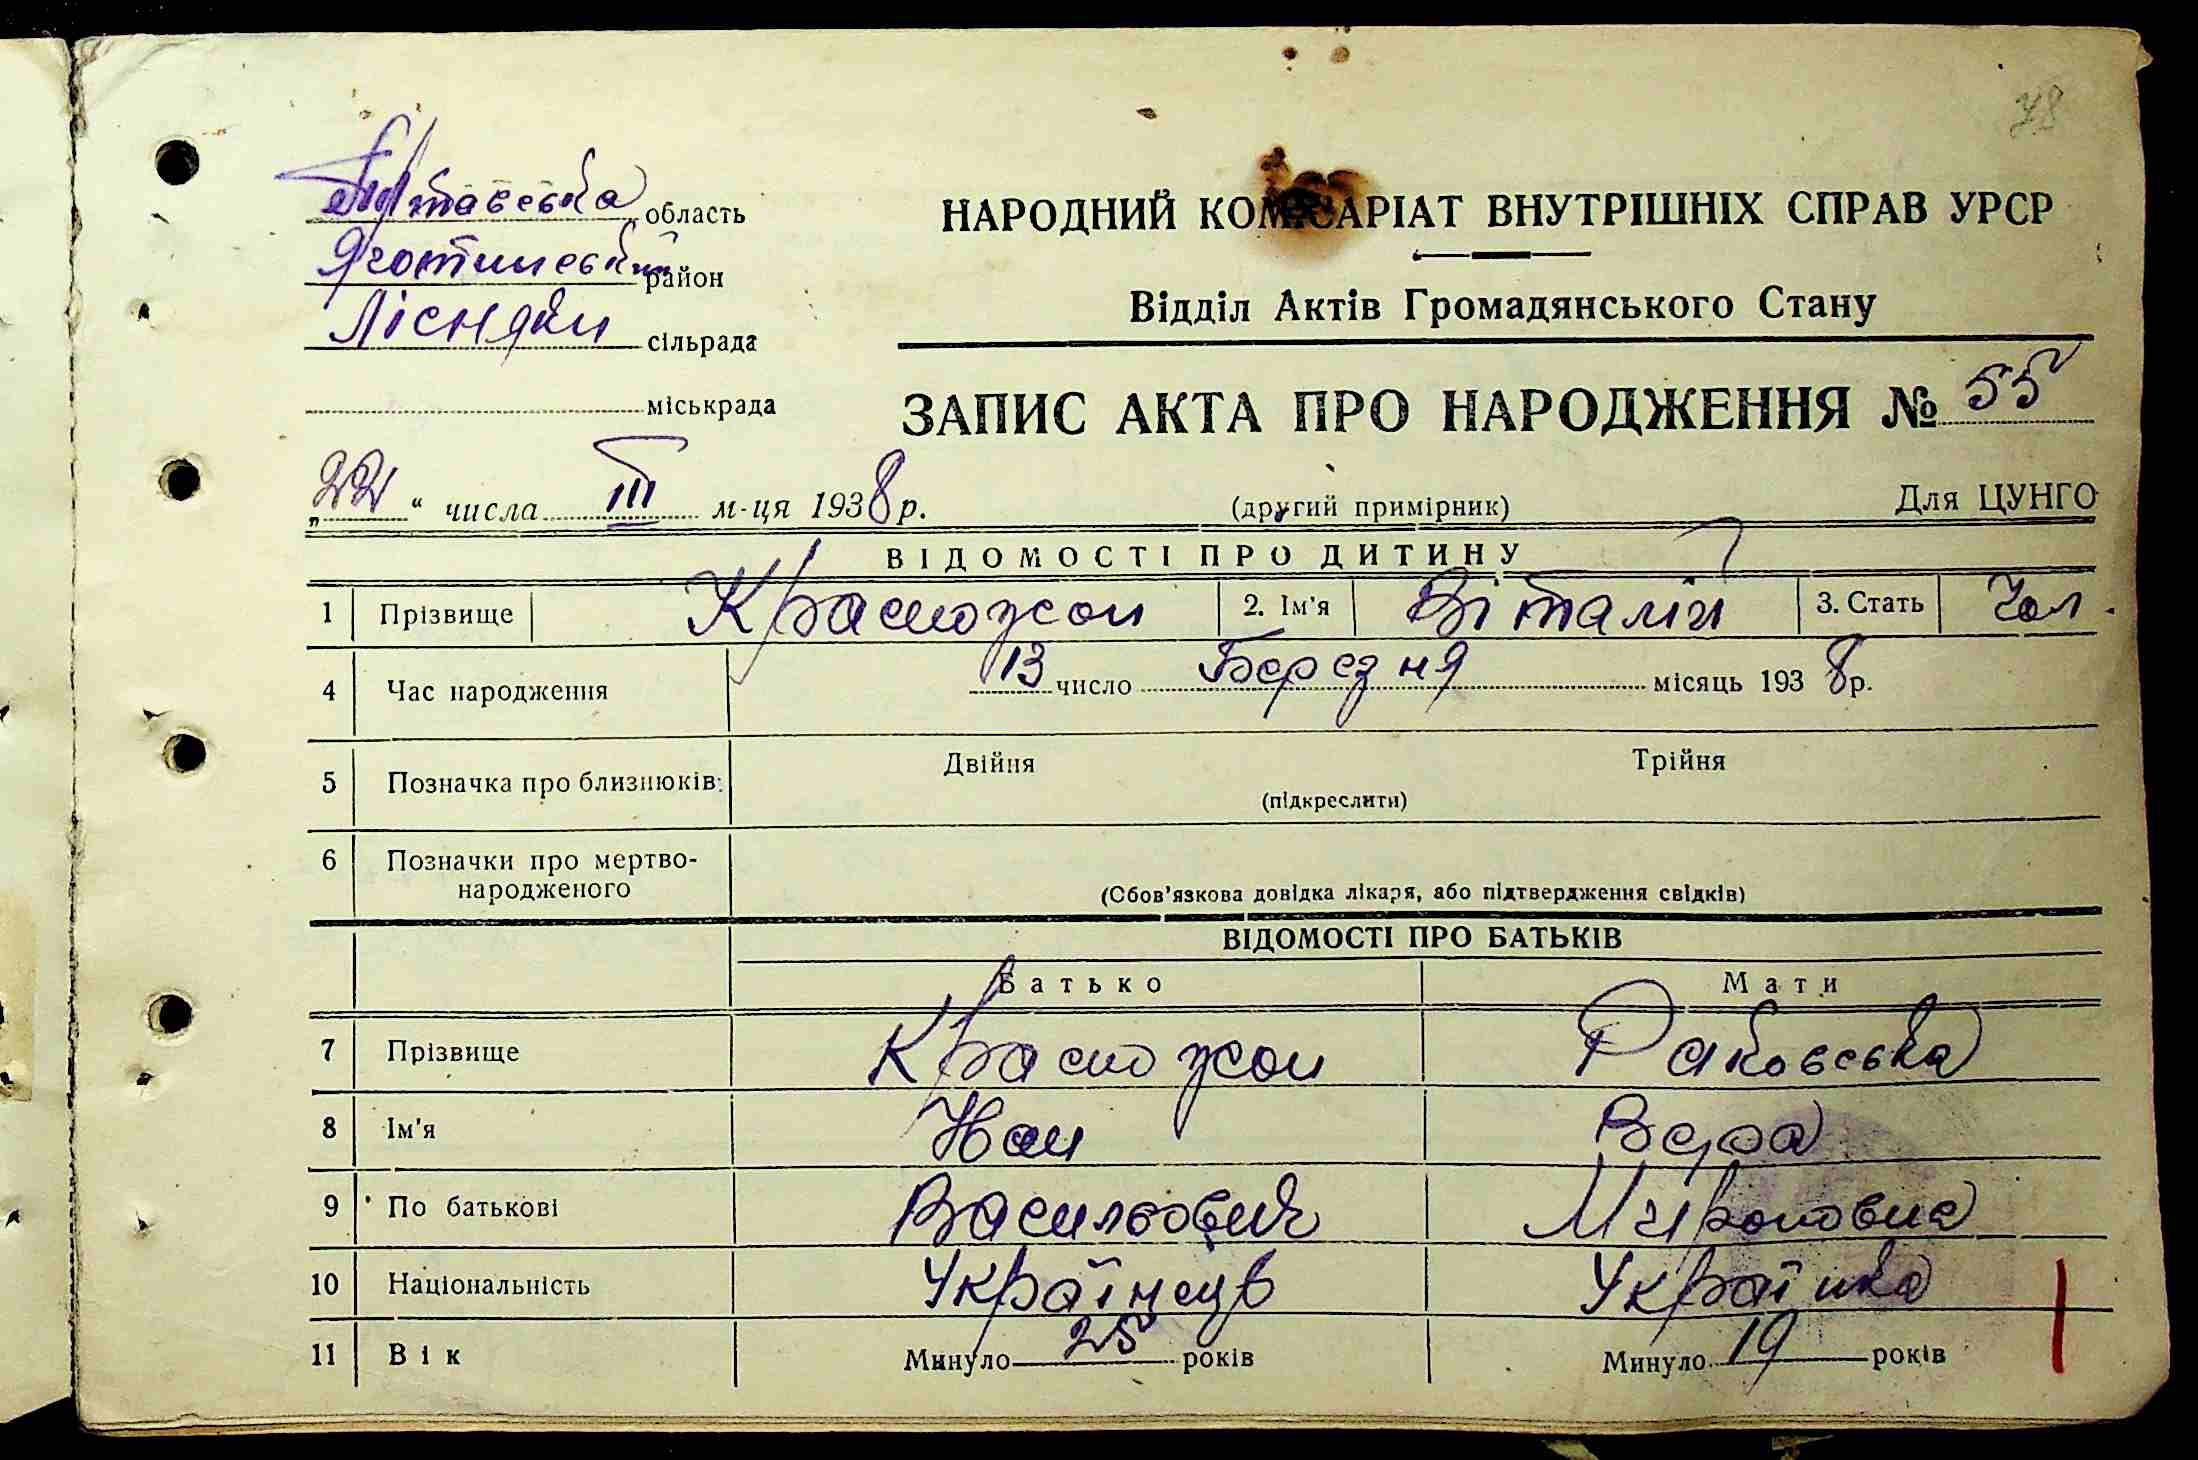 78
Полтавська область
Яготинський район
Лісняки сільрада
міськрада
НАРОДНИЙ КОМІСАРІАТ ВНУТРІШНІХ СПРАВ УРСР
Відділ Актів Громадянського Стану
ЗАПИС АКТА ПРО НАРОДЖЕННЯ № 55
„22“ числа III м-ця 1938 р.
(другий примірник)
Для ЦУНГО
ВІДОМОСТІ ПРО ДИТИНУ
1 Прізвище Красножон 2. Ім'я Віталій 3. Стать Чол.
4 Час народження 13 число Березня місяць 1938 р.
5 Позначка про близнюків: Двійня Трійня
(підкреслити)
6 Позначки про мертво-
народженого
(Сбов'язкова довідка лікаря, або підтвердження свідків)
ВІДОМОСТІ ПРО БАТЬКІВ
Батько Мати
7 Прізвище Красножон Раковська
8 Ім'я Іван Вера
9 По батькові Васильович Мироновна
10 Національність Українець Українка
11 Вік Минуло 25 років Минуло 19 років